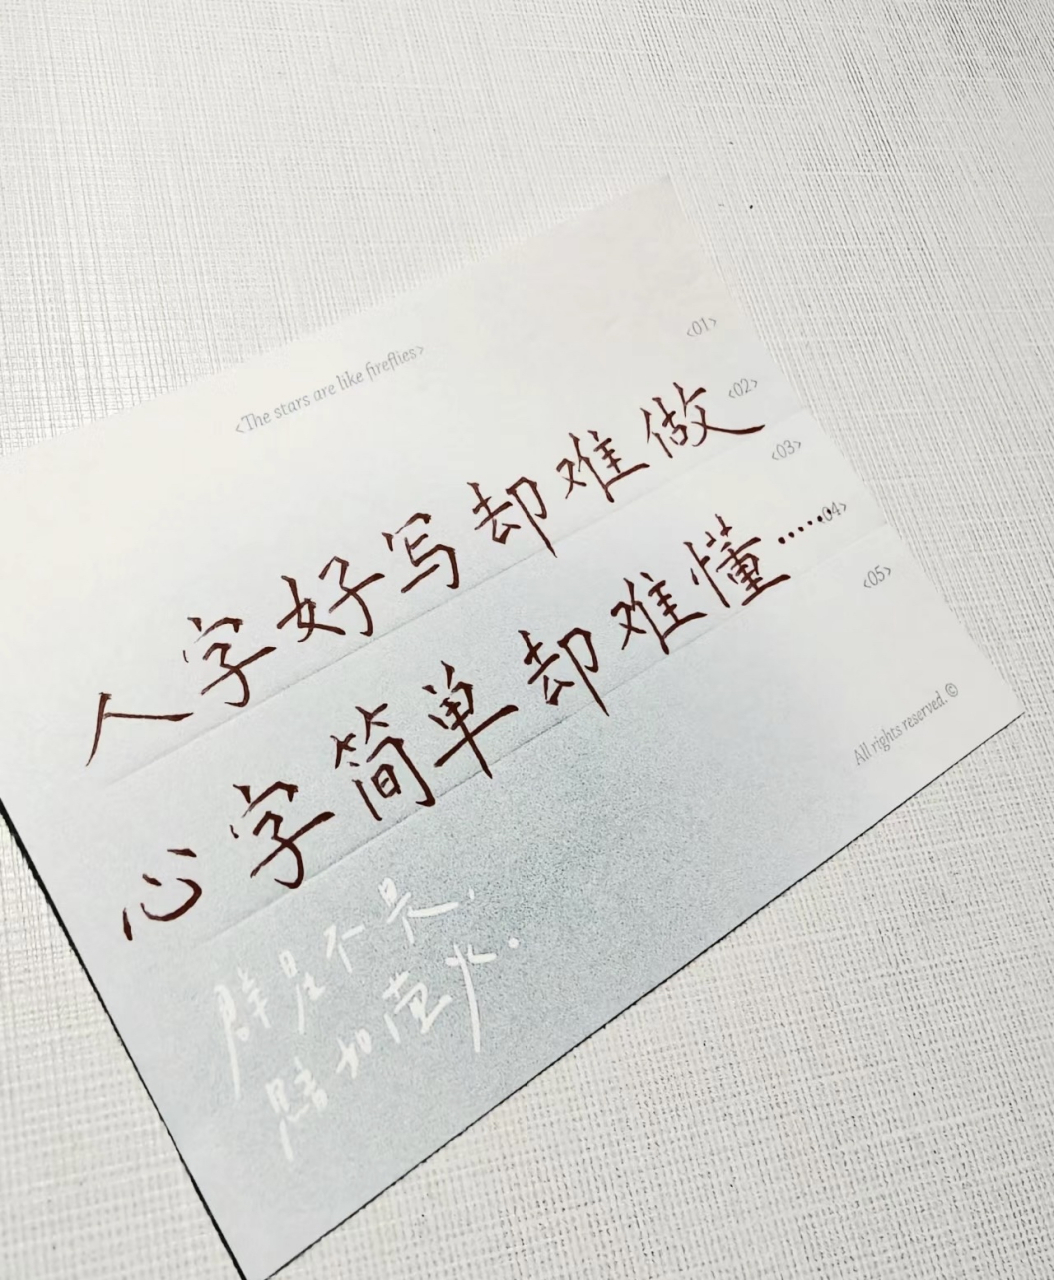 <The stars are like fireflies>
<01>
<02>
人字好写却难做
<03>
<04>
心字简单却难懂……
<05>
All rights reserved. ©
群星不是.
如萤火.